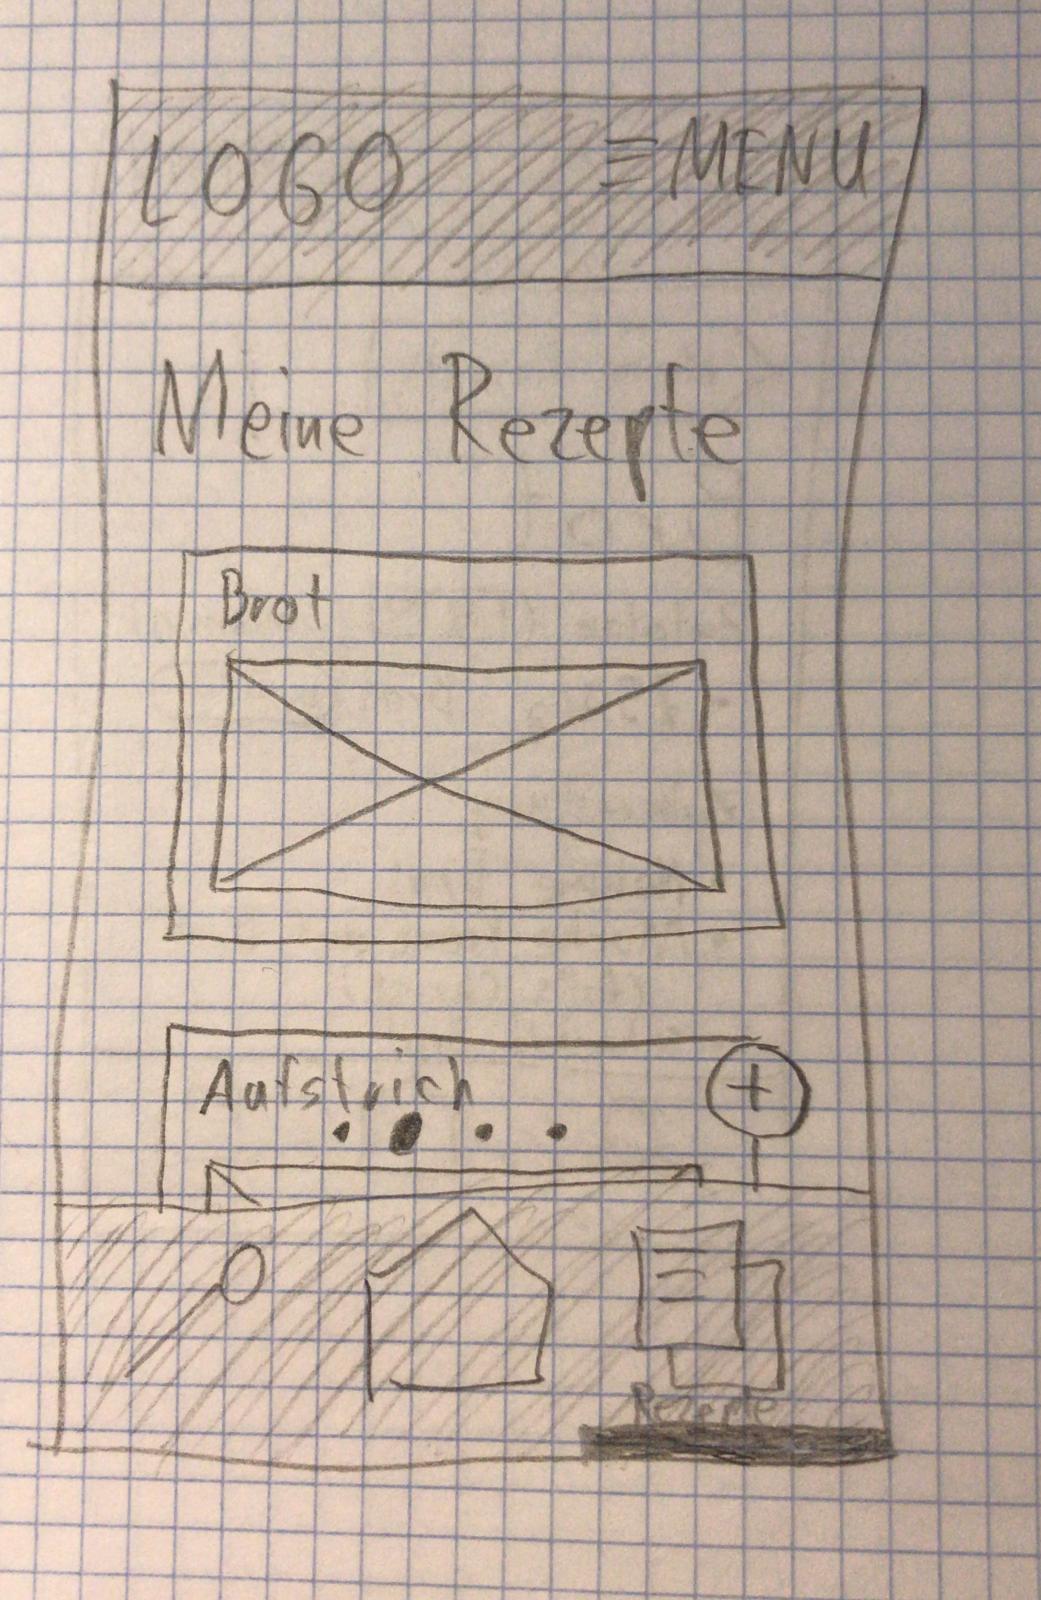 LOGO ≡ MENU
Meine Rezepte
Brot
Aufstrich
+
Rezepte